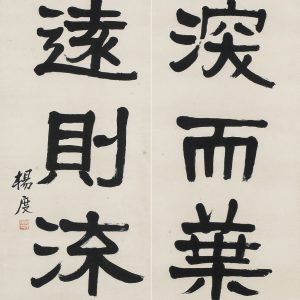 深而葉
遠則流
楊度